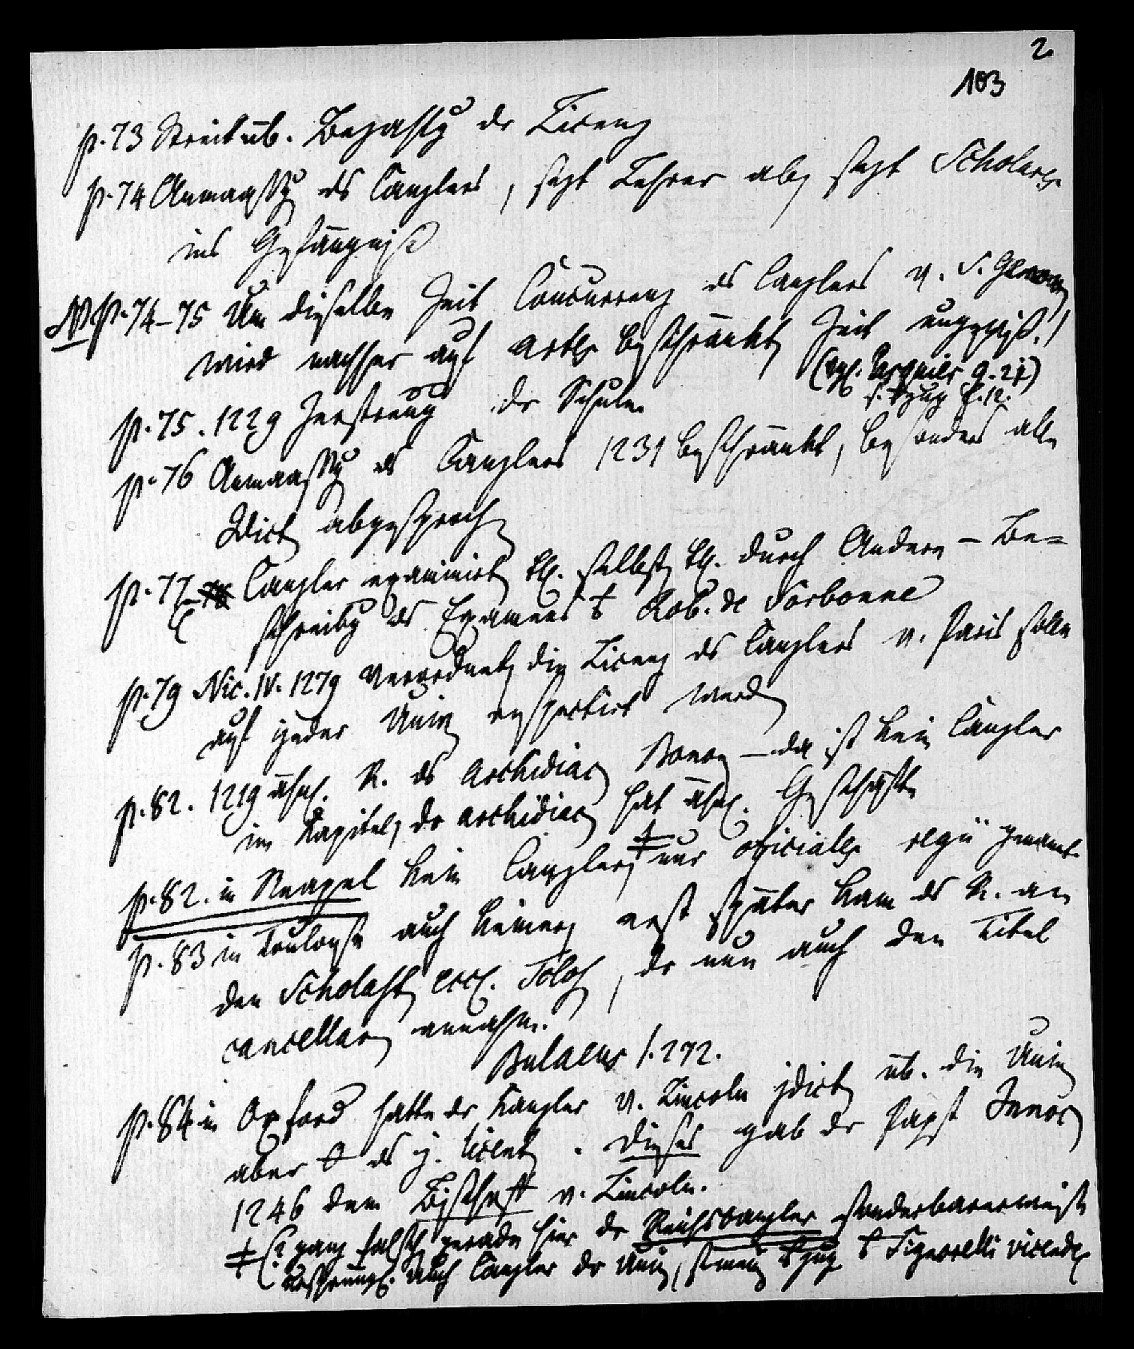 2
103
p. 73 Streit üb. Bezahlg der Licenz
p. 74 Anmaassg des Canzlers, sezt Lehrer ab, sezt Scholaren
ins Gefängniß
N. p. 74–75 Um dieselbe Zeit Concurrenz des Canzlers v. S. Genov
wird nachher auf artes beschränkt Zeit ungewiß.
(vgl. Pasquier 9. 21)
p. 75. 1229 Zerstreuung der Schule
p. 76 Anmaassg des Canzlers 1231 beschränkt, besonders alle
Jdict abgesprochen
p. 77 Canzler examinirt selbst durch Andere – Be=
schreibg des Examens Rob. de Sorbonne
p. 79 Nic. IV. 1279 verordnet die Licenz des Canzlers v. Paris solle
auf jeder Univ respectirt werden
p. 82. 1219 ähnl. R. des Archidiac Bonon – da ist kein Canzler
im Kapitel, der archidiac hat ähnl. Geschäfte
p. 82. in Neapel kein Canzler, nur officiales regii genannt
p. 83 in Toulouse auch keiner, erst später kam das R. an
den Scholast eccl. Tolos, der nun auch den Titel
cancellar annahm.
Bulaeus 1. 272.
p. 84 in Oxford hatte der Kanzler v. Lincoln jdict üb. die Univ
aber 0 das j. licent. Dieses gab der Papst Innoc
1246 dem Bischoff v. Lincoln.
ganz falsch gerade hier der Reichskanzler sonderbarerweise
ursprüngl. auch Canzler der Univ, Signorelli vicende